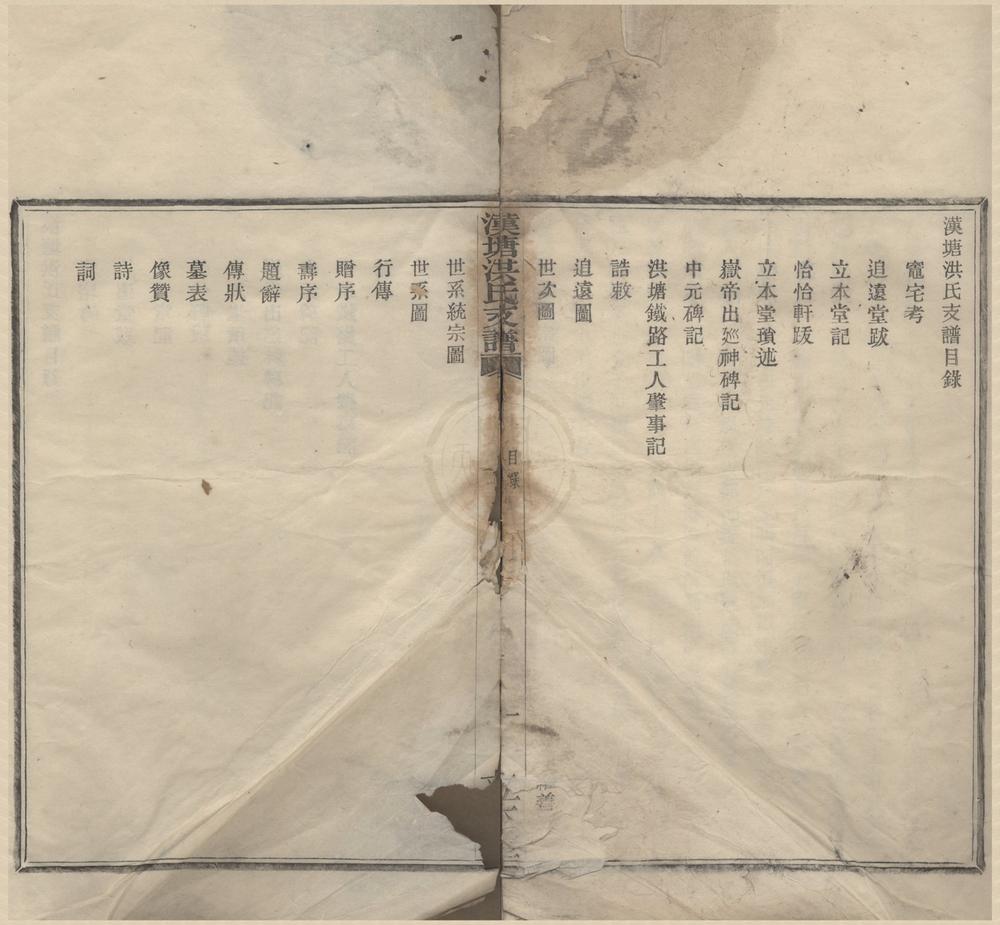 漢塘洪氏支譜目錄
竃宅考
追遠堂跋
立本堂記
怡怡軒跋
立本堂瑣述
嶽帝出廵神碑記
中元碑記
洪塘鐵路工人肇事記
誥敕
追遠圖
世次圖
漢塘洪氏支譜
目錄
一
善
世系統宗圖
世系圖
行傳
贈序
壽序
題辭
傳狀
墓表
像贊
詩
詞